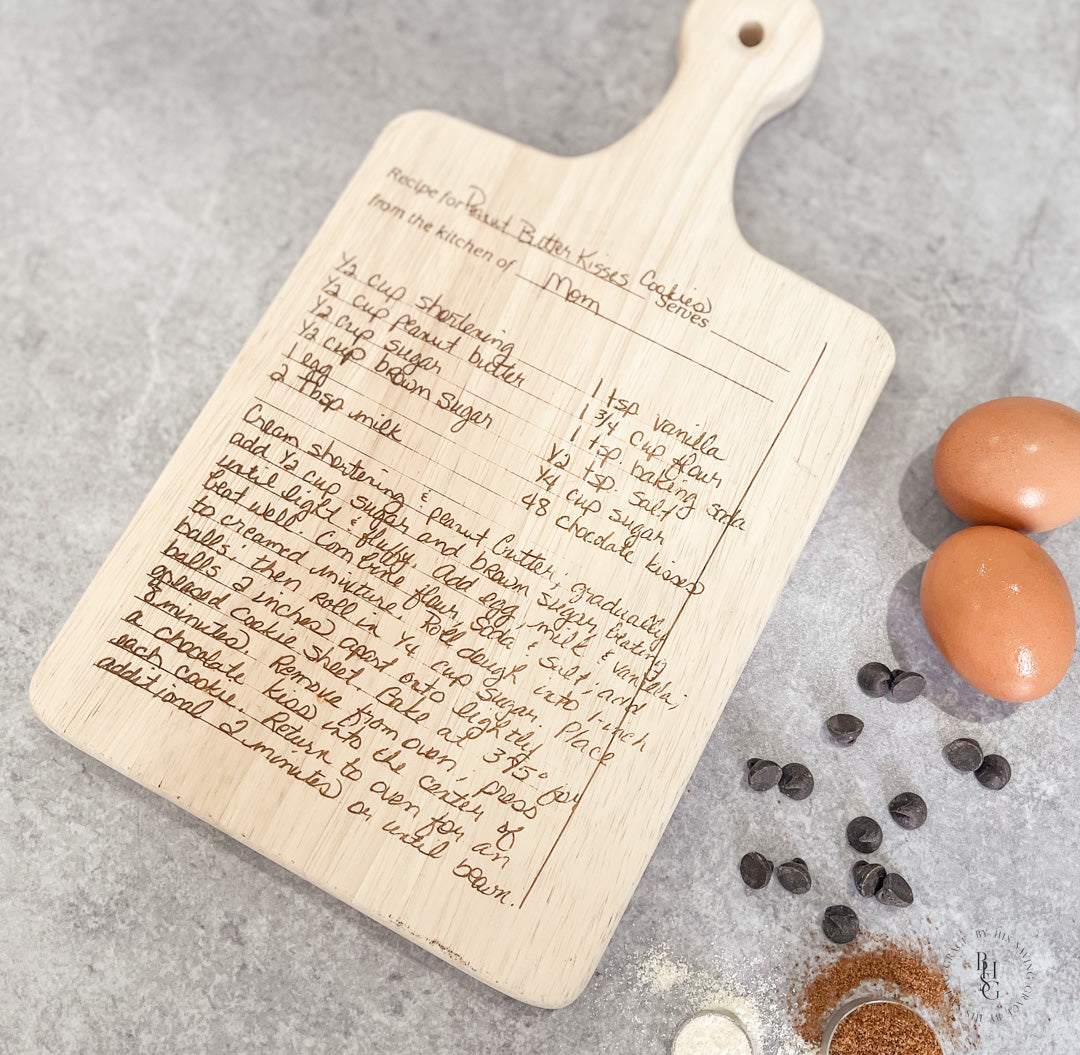 Recipe for Peanut Butter Kisses Cookies
from the kitchen of Mom Serves
½ cup shortening
½ cup peanut butter
½ cup sugar
½ cup brown sugar
1 egg
2 tbsp. milk
1 tsp vanilla
1 3/4 cup flour
1 tsp baking soda
½ tsp. salt
¼ cup sugar
48 chocolate kisses
Cream shortening & peanut butter, gradually
add ½ cup sugar and brown sugar, beating
until light & fluffy. Add egg, milk & vanilla;
beat well. Combine flour, soda & salt; and
to creamed mixture. Roll dough into 1-inch
balls; then roll in ¼ cup sugar. Place
balls 2 inches apart onto lightly
greased cookie sheet. Bake at 375° for
8 minutes. Remove from oven; press
a chocolate kiss into the center of
each cookie. Return to oven for an
additional 2 minutes or until brown.
BHG
BY HIS SAVING GRACE BY HIS SAVING GRACE